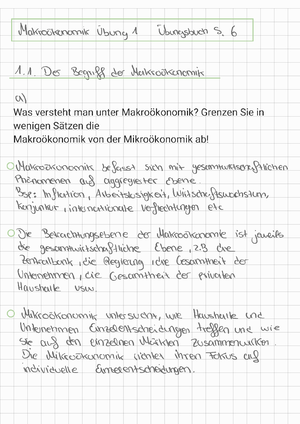 Makroökonomik Übung 1 Übungsbuch S. 6
1.1. Der Begriff der Makroökonomik
a)
Was versteht man unter Makroökonomik? Grenzen Sie in
wenigen Sätzen die
Makroökonomik von der Mikroökonomik ab!
Makroökonomik befasst sich mit gesamtwirtschaftlichen
Phänomenen auf aggregierter Ebene
Bsp: Inflation, Arbeitslosigkeit, Wirtschaftswachstum,
Konjunktur, internationale Verflechtungen etc
Die Betrachtungsebene der Makroökonomie ist jeweils
die gesamtwirtschaftliche Ebene, z.B die
Zentralbank, die Regierung, die Gesamtheit der
Unternehmen, die Gesamtheit der privaten
Haushalte usw.
Mikroökonomik untersucht, wie Haushalte und
Unternehmen Einzelentscheidungen treffen und wie
sie auf den einzelnen Märkten zusammenwirken.
Die Mikroökonomik richtet ihren Fokus auf
individuelle